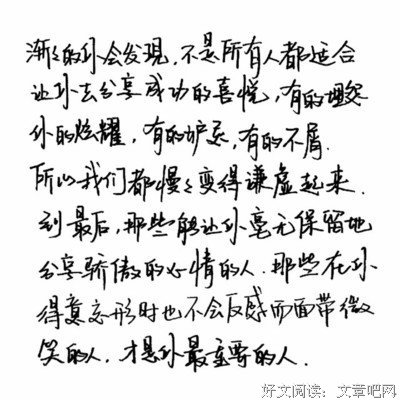 渐々的你会发现,不是所有人都适合
让你去分享成功的喜悦,有的埋怨
你的炫耀,有的妒忌,有的不屑.
所以我们都慢々变得谦虚起来.
到最后,那些能让你毫无保留地
分享骄傲的心情的人.那些在你
得意忘形时也不会反感而面带微
笑的人.才是你最重要的人.
好文阅读:文章吧网